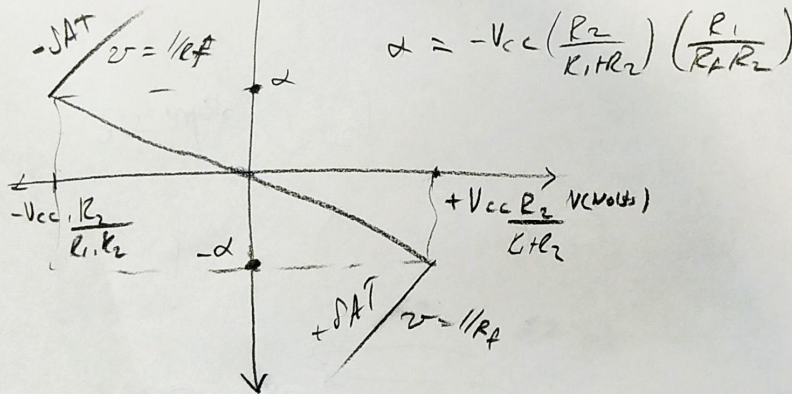 -SAT
v = 1/Rf
α = -Vcc (R2/R1+R2) (R1/RfR2)
α
-Vcc . R2/R1.R2
+Vcc R2/R1+R2
V(Volts)
-α
+SAT
v = 1/Rf